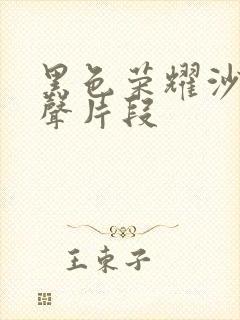 黑色荣耀沙
聲片段
王束子